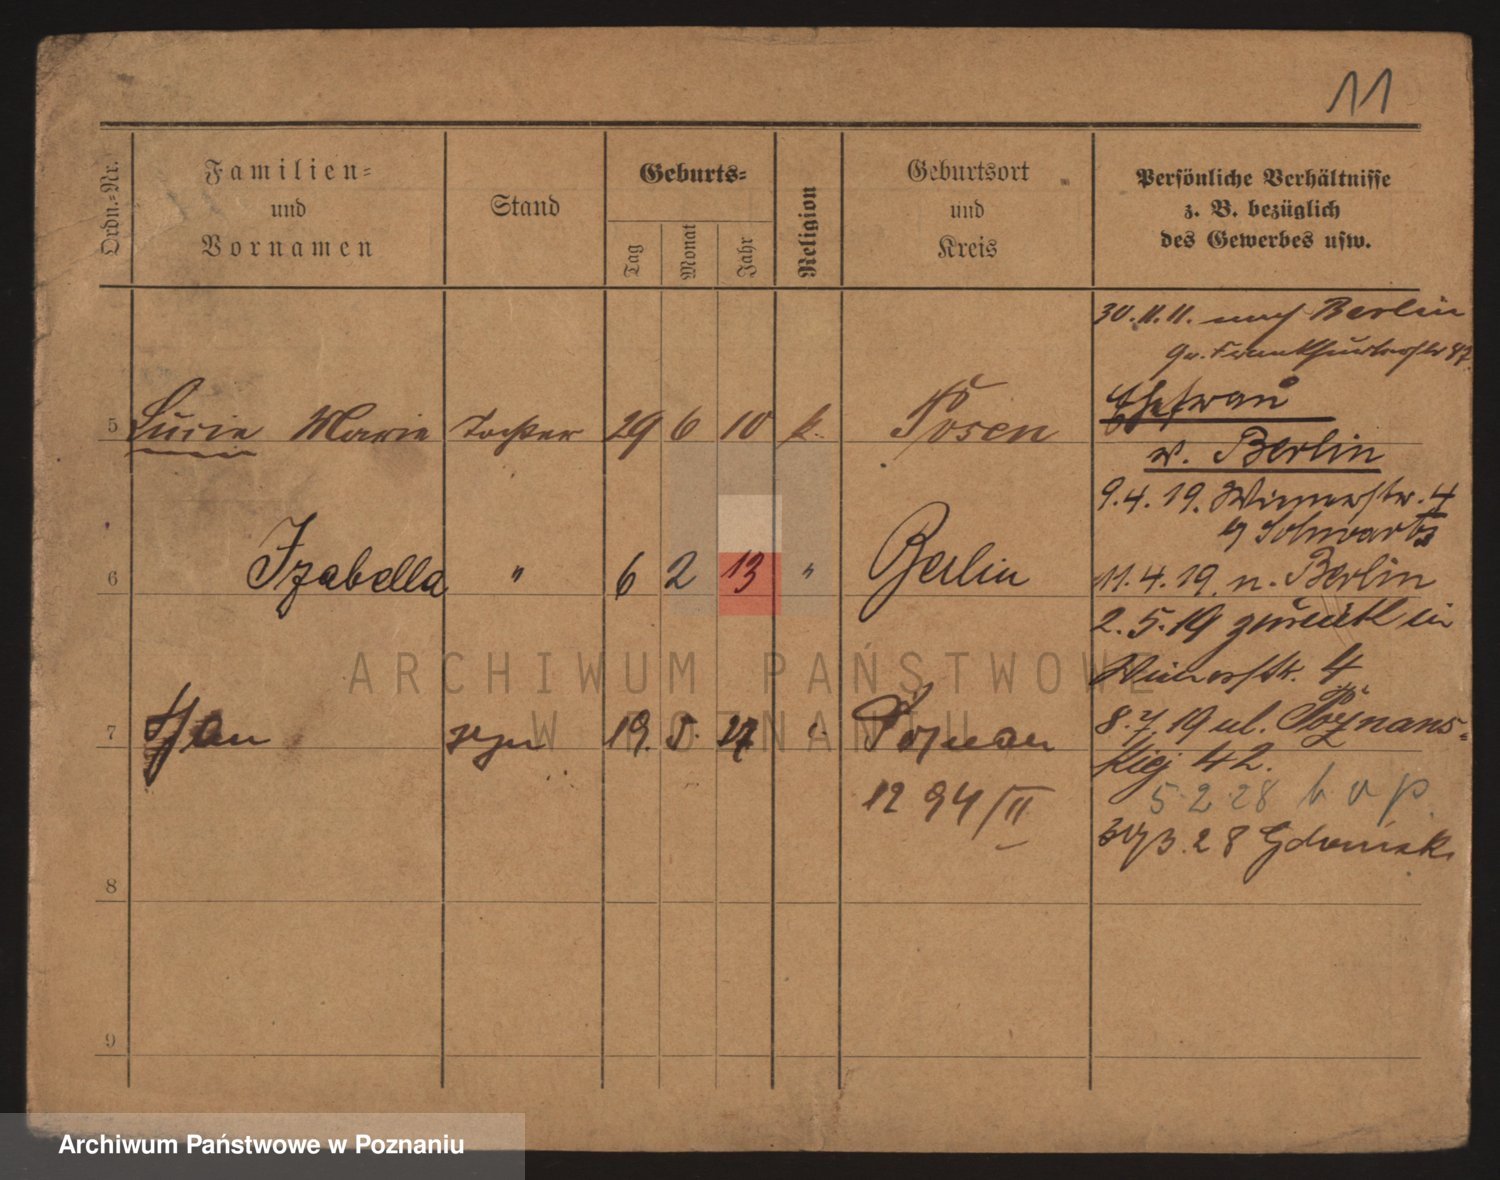 11
Ordn.-Nr.
Familien-
und
Vornamen
Stand
Geburts-
Tag
Monat
Jahr
Religion
Geburtsort
und
Kreis
Persönliche Verhältnisse
z. B. bezüglich
des Gewerbes usw.
30.11.11. nach Berlin
Gr. Frankfurterstr 87
5 Lucie Marie Tochter 29 6 10 k. Posen
Ehefrau
v. Berlin
9.4.19. Wienerstr. 4
Schwartz
6 Izabella " 6 2 13 " Berlin
11.4.19. n. Berlin
2.5.19 zurück in
Wienerstr. 4
7 Jan syn 19. 5. 27 Poznań
8.7.19 ul. Poznańs-
kiej 42.
1294/II
5 2 28
3.28
8
9
ARCHIWUM PAŃSTWOWE
W POZNANIU
Archiwum Państwowe w Poznaniu